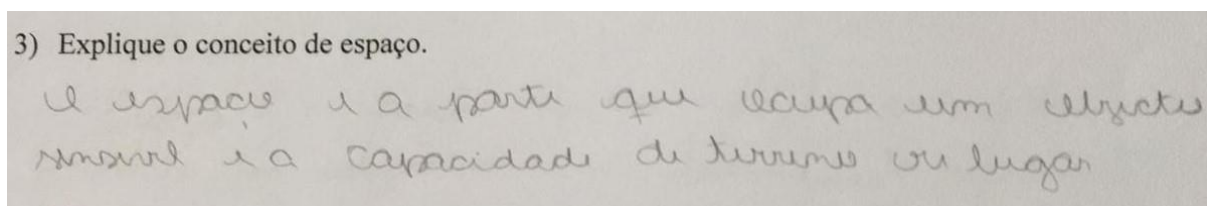 3) Explique o conceito de espaço.
O espaço é a parte que ocupa um objecto
sensivel é a capacidade de terreno ou lugar